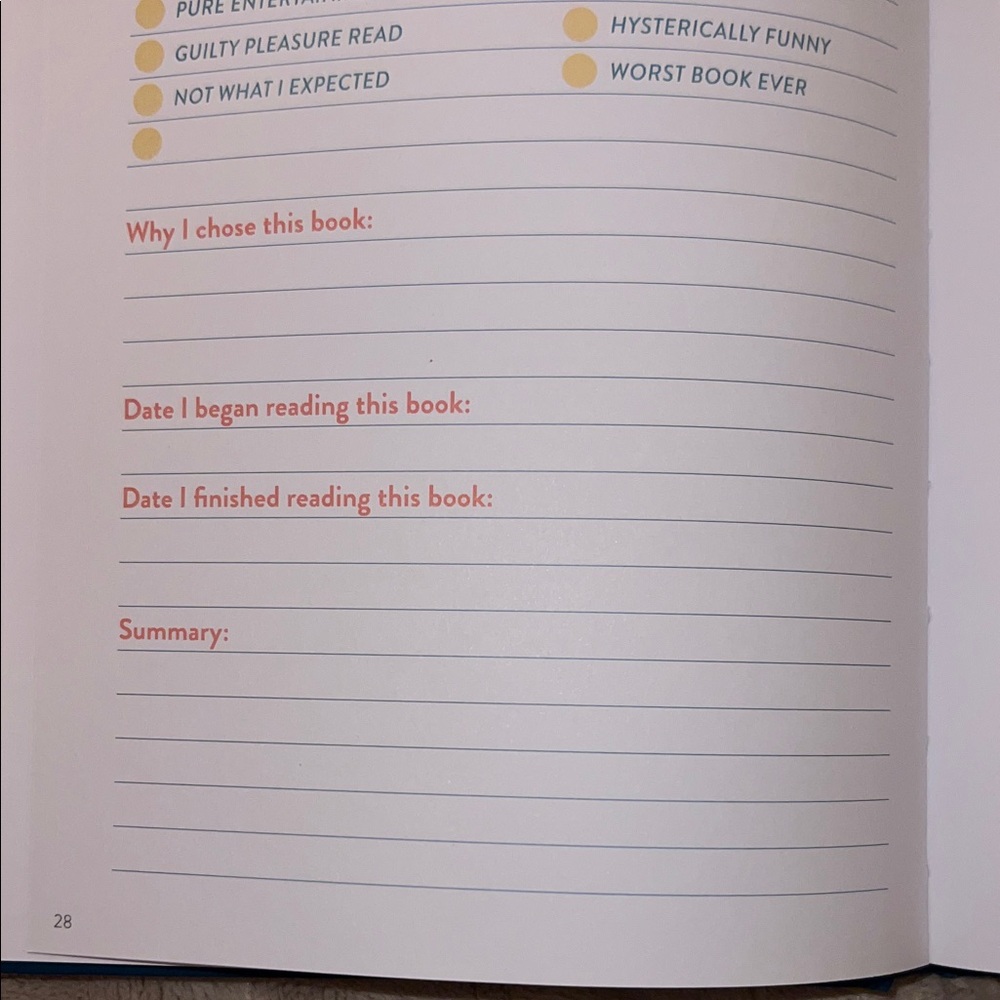 PURE
GUILTY PLEASURE READ
HYSTERICALLY FUNNY
NOT WHAT I EXPECTED
WORST BOOK EVER
Why I chose this book:
Date I began reading this book:
Date I finished reading this book:
Summary:
28